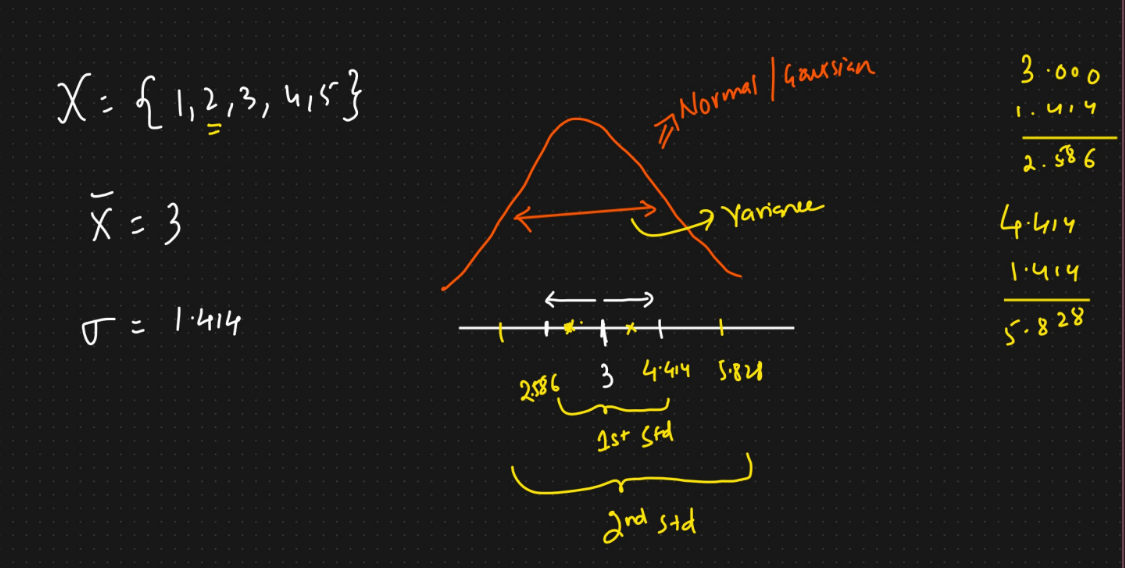 X = { 1, 2, 3, 4, 5 }
x̄ = 3
σ = 1.414
Normal / Gaussian
Variance
2.586 3 4.414 5.828
1st Std
2nd std
3.000
1.414
2.586
4.414
1.414
5.828